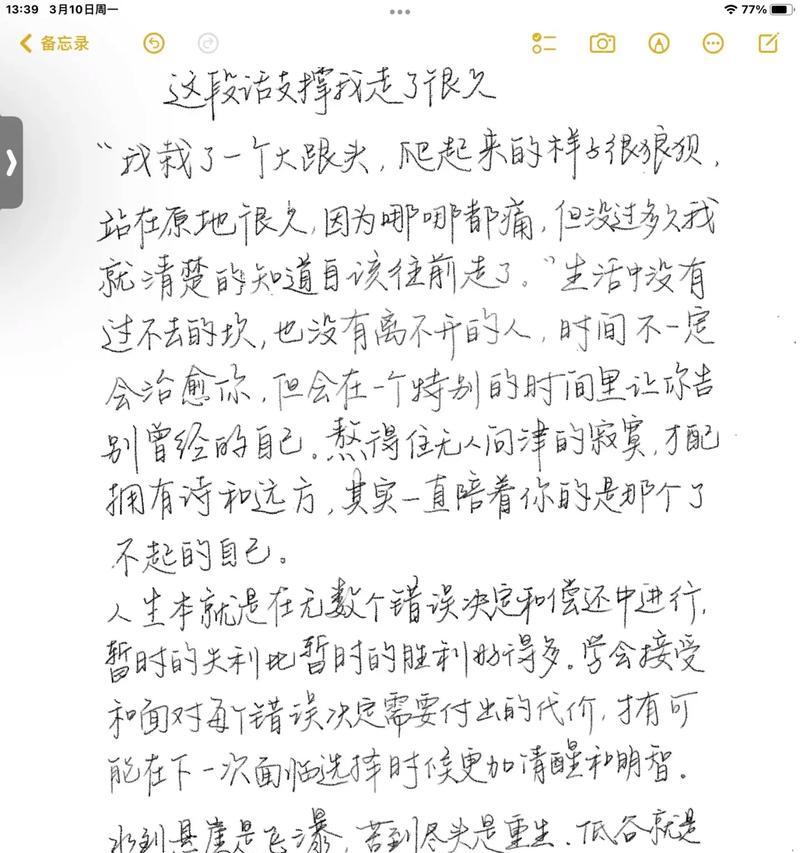 13:39 3月10日周一
77%
备忘录
这段话支撑我走了很久
“我栽了一个大跟头，爬起来的样子很狼狈，
站在原地很久，因为哪哪都痛，但没过多久我
就清楚的知道自该往前走了。”生活中没有
过不去的坎，也没有离不开的人，时间不一定
会治愈你，但会在一个特别的时间里让你告
别曾经的自己。熬得住无人问津的寂寞，才配
拥有诗和远方，其实一直陪着你的是那个了
不起的自己。
人生本就是在无数个错误决定和偿还中进行，
暂时的失利比暂时的胜利好得多。学会接受
和面对每个错误决定需要付出的代价，才有可
能在下一次面临选择时候更加清醒和明智。
水到悬崖是飞瀑，苦到尽头是重生。低谷就是